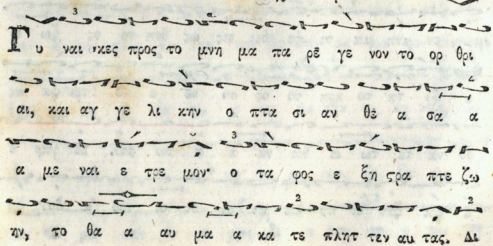 Γυ ναι κες προς το μνη μα πα ρε γε νον το ορ θρι
αι, και αγ γε λι κην ο πτα σι αν θε α σα α
α με ναι ε τρε μον· ο τα φος ε ξη ςρα πτε ζω
ην, το θα α αυ μα α κα τε πλητ τεν αυ τας. Δι